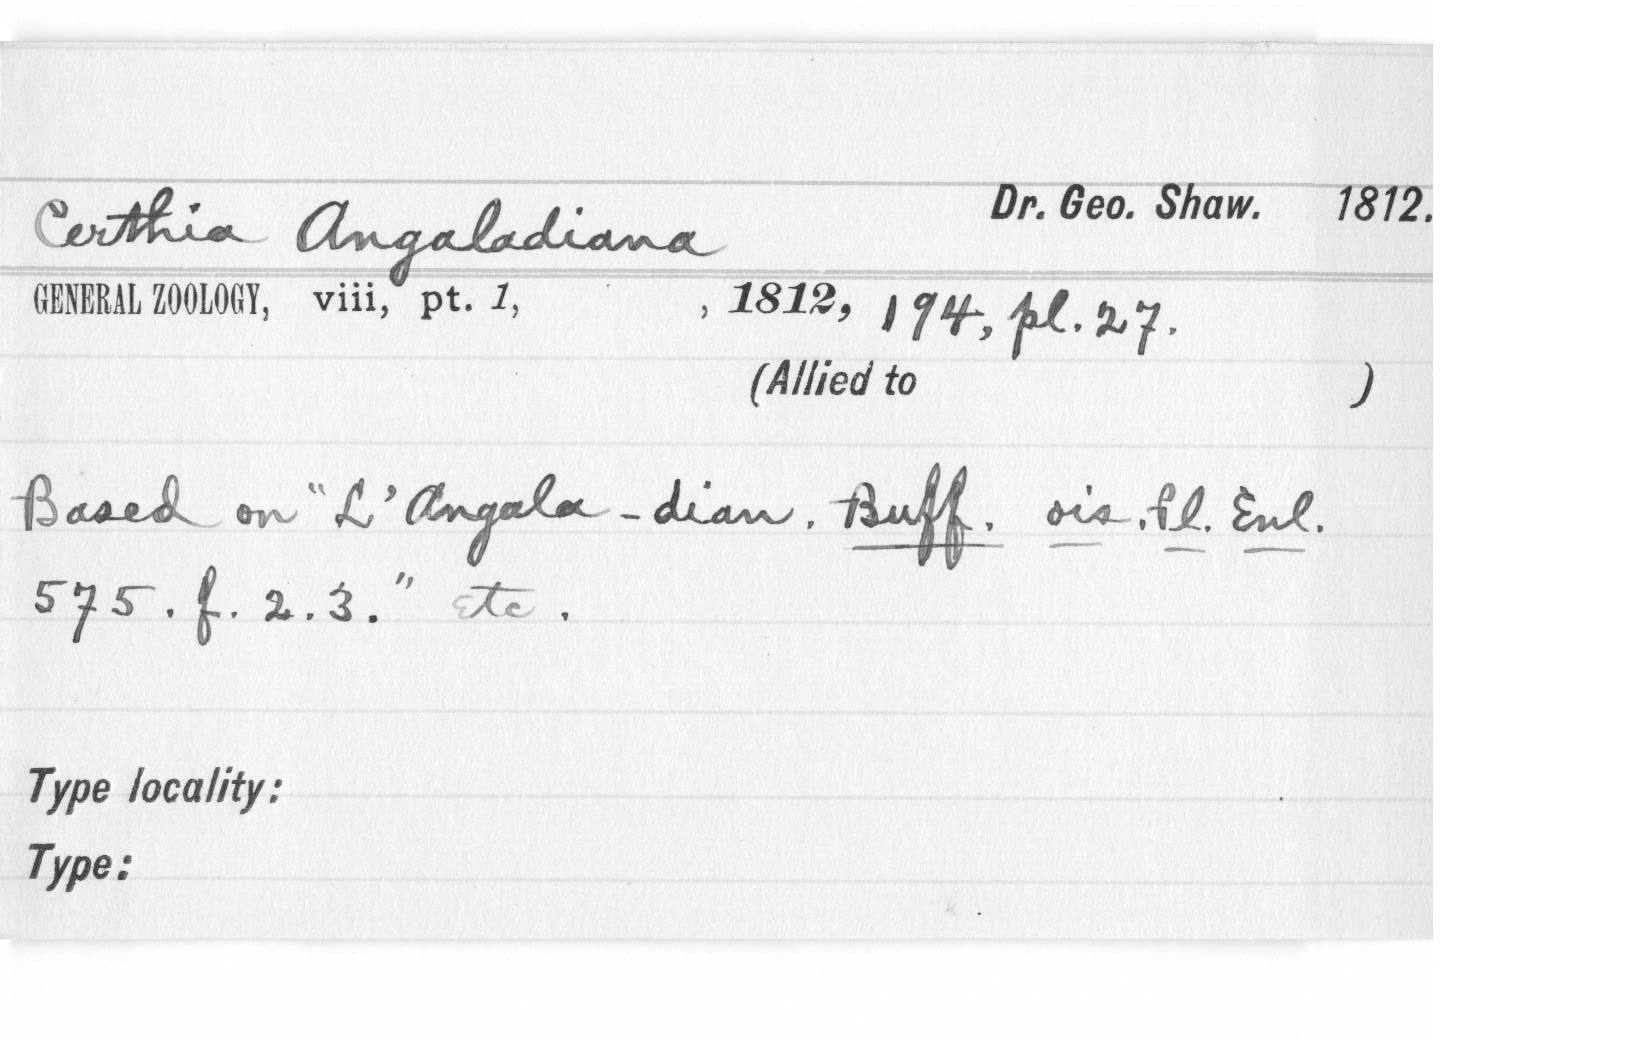 Certhia Angaladiana Dr. Geo. Shaw. 1812.
GENERAL ZOOLOGY, viii, pt. 1, , 1812, 194, pl. 27.
(Allied to )
Based on "L'Angala-dian. Buff. ois. Pl. Enl.
575. f. 2. 3." Etc.
Type locality:
Type: